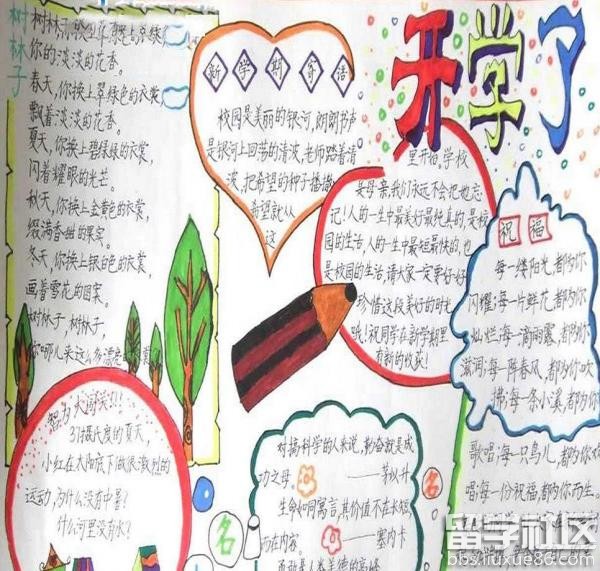 开学了
树林子
你的淡淡的花香。
春天,你换上翠绿色的衣裳,
飘着淡淡的花香。
夏天,你换上碧绿绿的衣裳,
闪着耀眼的光芒。
秋天,你换上金黄色的衣裳,
缀满香甜的果实。
冬天,你换上银白色的衣裳,
画着雪花的图案。
树林子,树林子,
新学期寄语
校园是美丽的银河,朗朗书声
是银河上回荡的清波,老师踏着清
波,把希望的种子播撒
希望就从
这
里开始,学校
是母亲,我们永远不会把他忘
记!人的一生中最美好最纯真的,是校
园的生活,人的一生中最短最快的,也
是校园的生活,请大家一定要好好
珍惜这段美好的时光
哦!祝同学在新学期里
有新的收获!
祝福
每一缕阳光,都为你
闪耀;每一片鲜花,都为你
灿烂;每一滴雨露,都为你
滋润;每一阵春风,都为你吹
拂;每一条小溪,都为你
歌唱;每一只鸟儿,都为你
唱;每一份祝福,都为你而生。
智力大闯关!!!
37摄氏度的夏天,
小红在太阳底下做很激烈的
运动,为什么没有中暑?
什么河里没有水?
名
对搞科学的人来说,勤奋就是成
功之母。
——茅以升
生命如同寓言,其价值不在长短
而在内容。
——塞内卡
勇敢是人类美德的高峰
名
留学社区
bbs.liuxue86.com